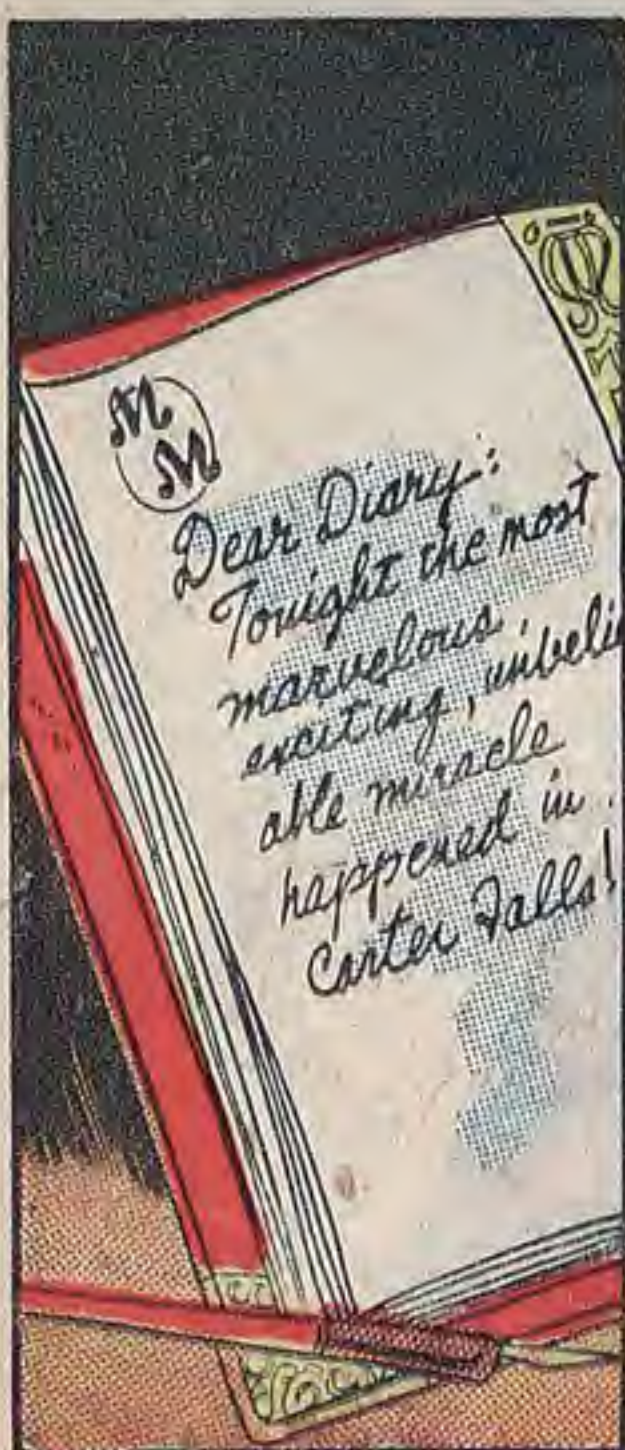 M
M
Dear Diary:
Tonight the most
marvelous,
exciting, unbeli
able miracle
happened in
Carter Falls!